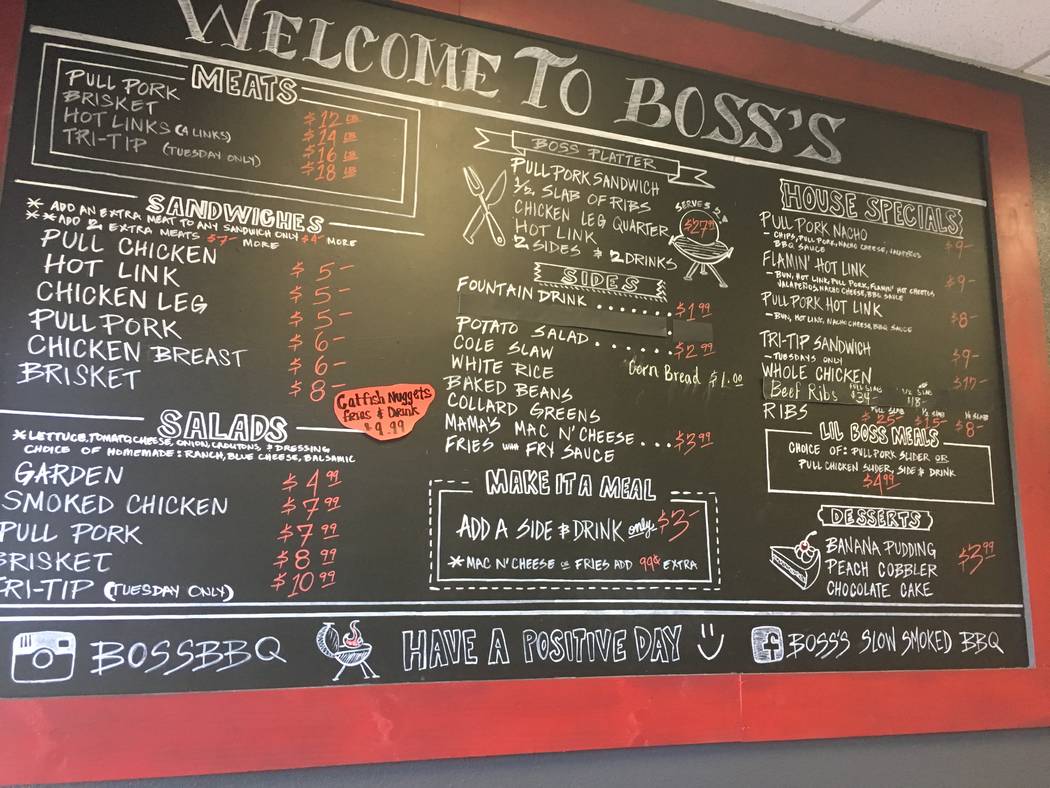 WELCOME TO BOSS'S
MEATS
PULL PORK $12 LB
BRISKET $14 LB
HOT LINKS (4 LINKS) $16 LB
TRI-TIP (TUESDAY ONLY) $18 LB
SANDWICHES
* ADD AN EXTRA MEAT TO ANY SANDWICH ONLY $4- MORE
** ADD 2 EXTRA MEATS $7- MORE
PULL CHICKEN $5-
HOT LINK $5-
CHICKEN LEG $5-
PULL PORK $6-
CHICKEN BREAST $6-
BRISKET $8-
Catfish Nuggets
Fries & Drink
$9.99
SALADS
* LETTUCE, TOMATO, CHEESE, ONION, CROUTONS, & DRESSING
CHOICE OF HOMEMADE: RANCH, BLUE CHEESE, BALSAMIC
GARDEN $4.99
SMOKED CHICKEN $7.99
PULL PORK $7.99
BRISKET $8.99
TRI-TIP (TUESDAY ONLY) $10.99
BOSS PLATTER
PULL PORK SANDWICH
1/2 SLAB OF RIBS
CHICKEN LEG QUARTER
HOT LINK
2 SIDES & 2 DRINKS
$27.99
SIDES
FOUNTAIN DRINK ....... $1.99
POTATO SALAD ...... $2.99
COLE SLAW
WHITE RICE
Corn Bread $1.00
BAKED BEANS
COLLARD GREENS
MAMA'S MAC N' CHEESE ... $3.99
FRIES WITH FRY SAUCE
MAKE IT A MEAL
ADD A SIDE & DRINK only $3-
* MAC N' CHEESE OR FRIES ADD 99¢ EXTRA
HOUSE SPECIALS
PULL PORK NACHO $9-
- CHIPS, PULL PORK, NACHO CHEESE, JALAPEÑOS
BBQ SAUCE
FLAMIN' HOT LINK $9-
- BUN, HOT LINK, PULL PORK, FLAMIN' HOT CHEETOS
JALAPEÑOS, NACHO CHEESE, BBQ SAUCE
PULL PORK HOT LINK $8-
- BUN, HOT LINK, NACHO CHEESE, BBQ SAUCE
TRI-TIP SANDWICH $9-
- TUESDAYS ONLY
WHOLE CHICKEN
Beef Ribs FULL SLAB $34- 1/2 SLAB $18-
RIBS FULL SLAB $25- 1/2 SLAB $15- 1/4 SLAB $8-
LIL BOSS MEALS
CHOICE OF: PULL PORK SLIDER OR
PULL CHICKEN SLIDER, SIDE & DRINK
$4.99
DESSERTS
BANANA PUDDING
PEACH COBBLER $3.99
CHOCOLATE CAKE
BOSSBBQ
HAVE A POSITIVE DAY
f BOSS'S SLOW SMOKED BBQ